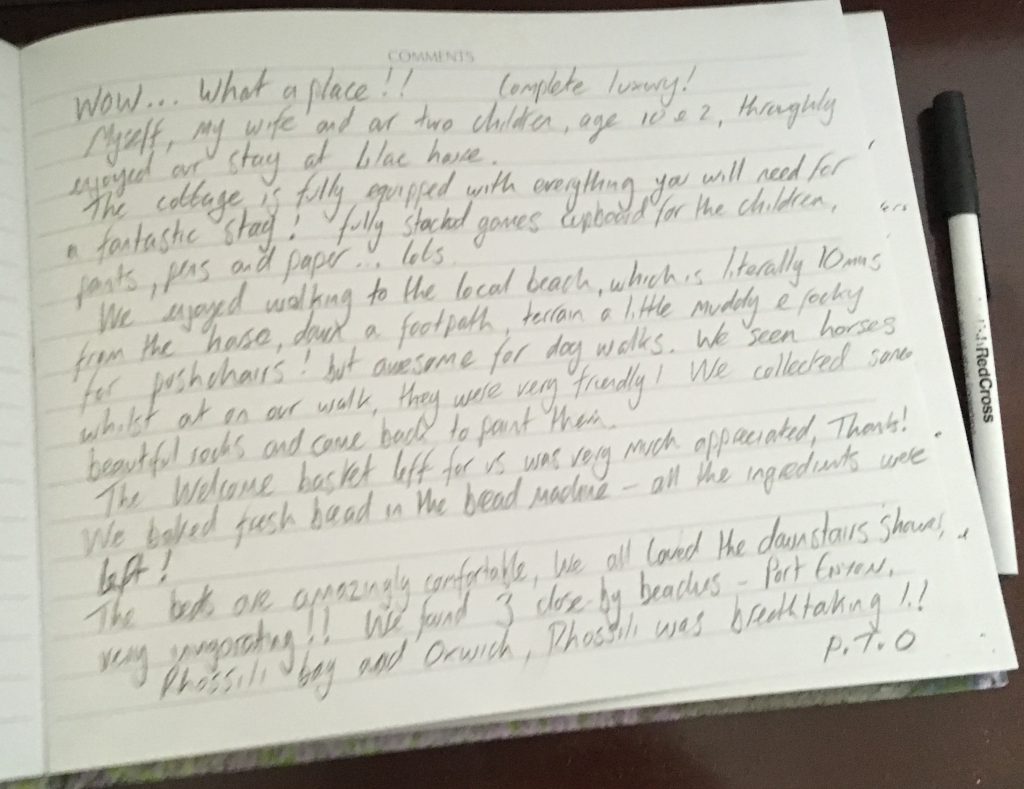 COMMENTS
WOW... What a place!! Complete luxury!
Myself, my wife and our two children, age 10 & 2, throughly
enjoyed our stay at lilac house.
The cottage is fully equipped with everything you will need for
a fantastic stay! fully stocked games cupboard for the children,
paints, pens and paper... lots.
We enjoyed walking to the local beach, which is literally 10mins
from the house, down a footpath, terrain a little muddy & rocky
for pushchairs! but awesome for dog walks. We seen horses
whilst out on our walk, they were very friendly! We collected some
beautiful rocks and came back to paint them.
The Welcome basket left for us was very much appreciated, Thanks!
We baked fresh bread in the bread machine - all the ingredients were
left!
The beds are amazingly comfortable, We all loved the downstairs shower,
very invigorating!! We found 3 close by beaches - Port Eynon,
Rhossili bay and Oxwich, Rhossili was breathtaking!!
P.T.O
RedCross